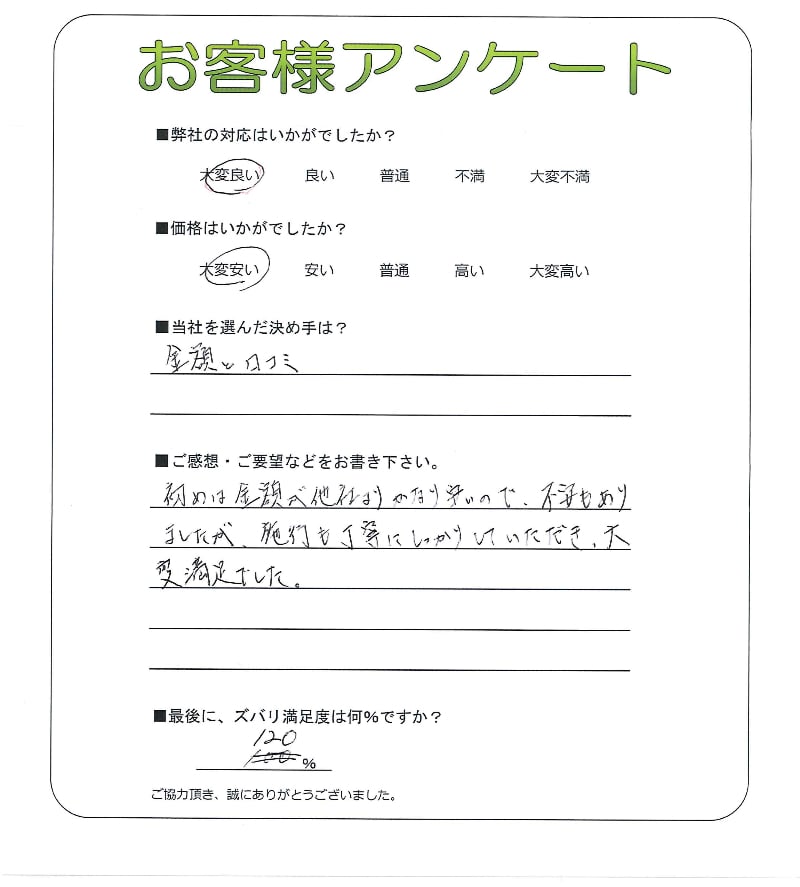 お客様アンケート
■弊社の対応はいかがでしたか？
大変良い 良い 普通 不満 大変不満
■価格はいかがでしたか？
大変安い 安い 普通 高い 大変高い
■当社を選んだ決め手は？
金額と口コミ
■ご感想・ご要望などをお書き下さい。
初めは金額が他社よりかなり安いので、不安もあり
ましたが、施行も丁寧にしっかりしていただき、大
変満足でした。
■最後に、ズバリ満足度は何％ですか？
120
100 %
ご協力頂き、誠にありがとうございました。